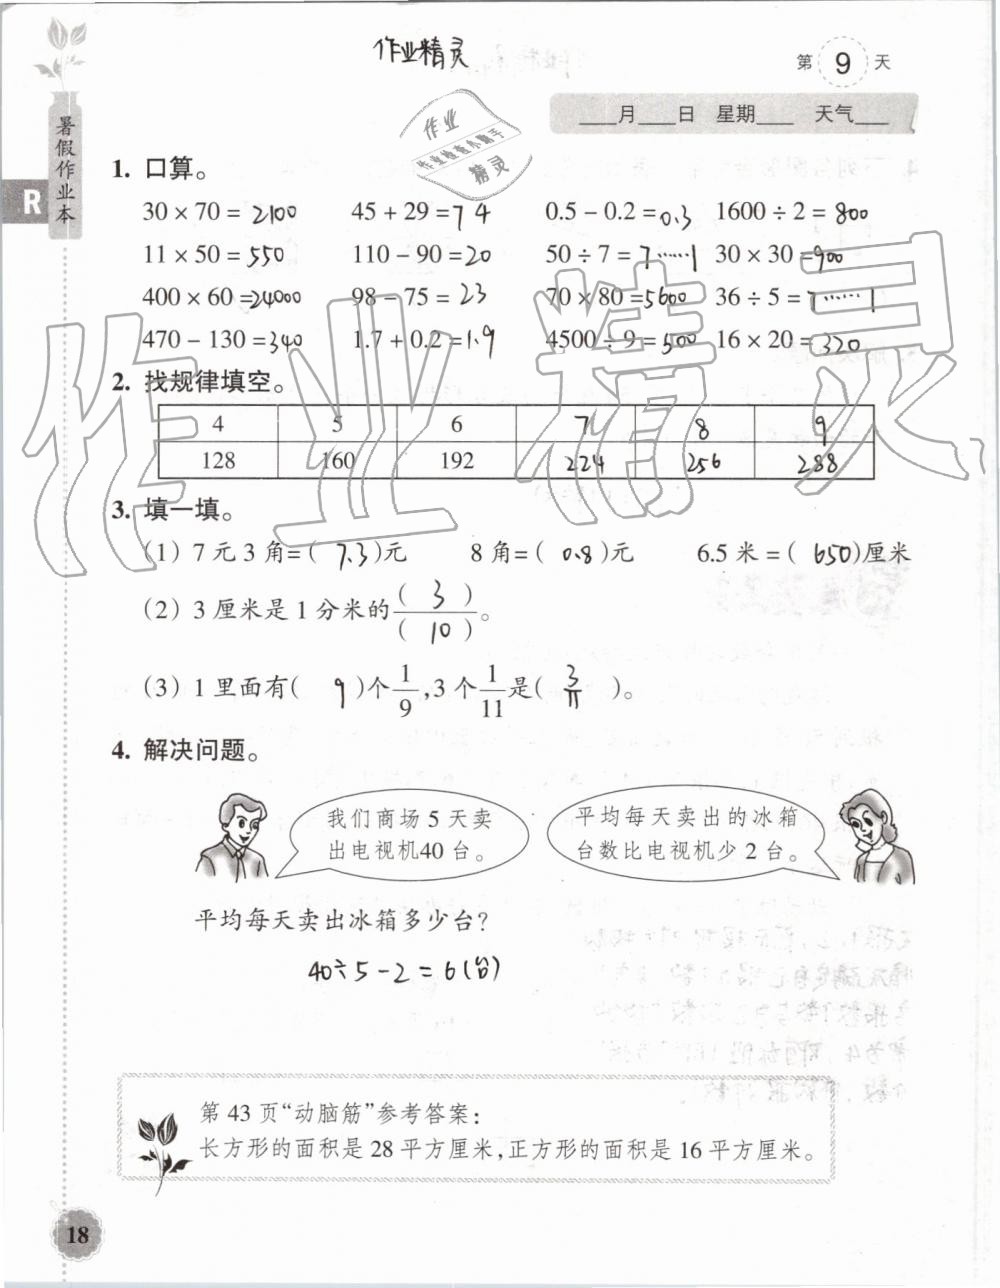 作业精灵
第 9 天
____月____日 星期____ 天气____
暑假作业本
R
作业
作业检查小助手
精灵
1. 口算。
30 × 70 = 2100 45 + 29 = 74 0.5 - 0.2 = 0.3 1600 ÷ 2 = 800
11 × 50 = 550 110 - 90 = 20 50 ÷ 7 = 7……1 30 × 30 = 900
400 × 60 = 24000 98 - 75 = 23 70 × 80 = 5600 36 ÷ 5 = 7……1
470 - 130 = 340 1.7 + 0.2 = 1.9 4500 ÷ 9 = 500 16 × 20 = 320
作业精灵
2. 找规律填空。
4 5 6 7 8 9
128 160 192 224 256 288
3. 填一填。
(1) 7 元 3 角=( 7.3 )元 8 角=( 0.8 )元 6.5 米 =( 650 )厘米
(2) 3 厘米是 1 分米的( 3 )/( 10 )。
(3) 1 里面有( 9 )个1/9,3 个1/11是( 3/11 )。
4. 解决问题。
我们商场 5 天卖
出电视机40 台。
平均每天卖出的冰箱
台数比电视机少 2 台。
平均每天卖出冰箱多少台?
40÷5-2=6(台)
第 43 页“动脑筋”参考答案:
长方形的面积是 28 平方厘米,正方形的面积是 16 平方厘米。
18